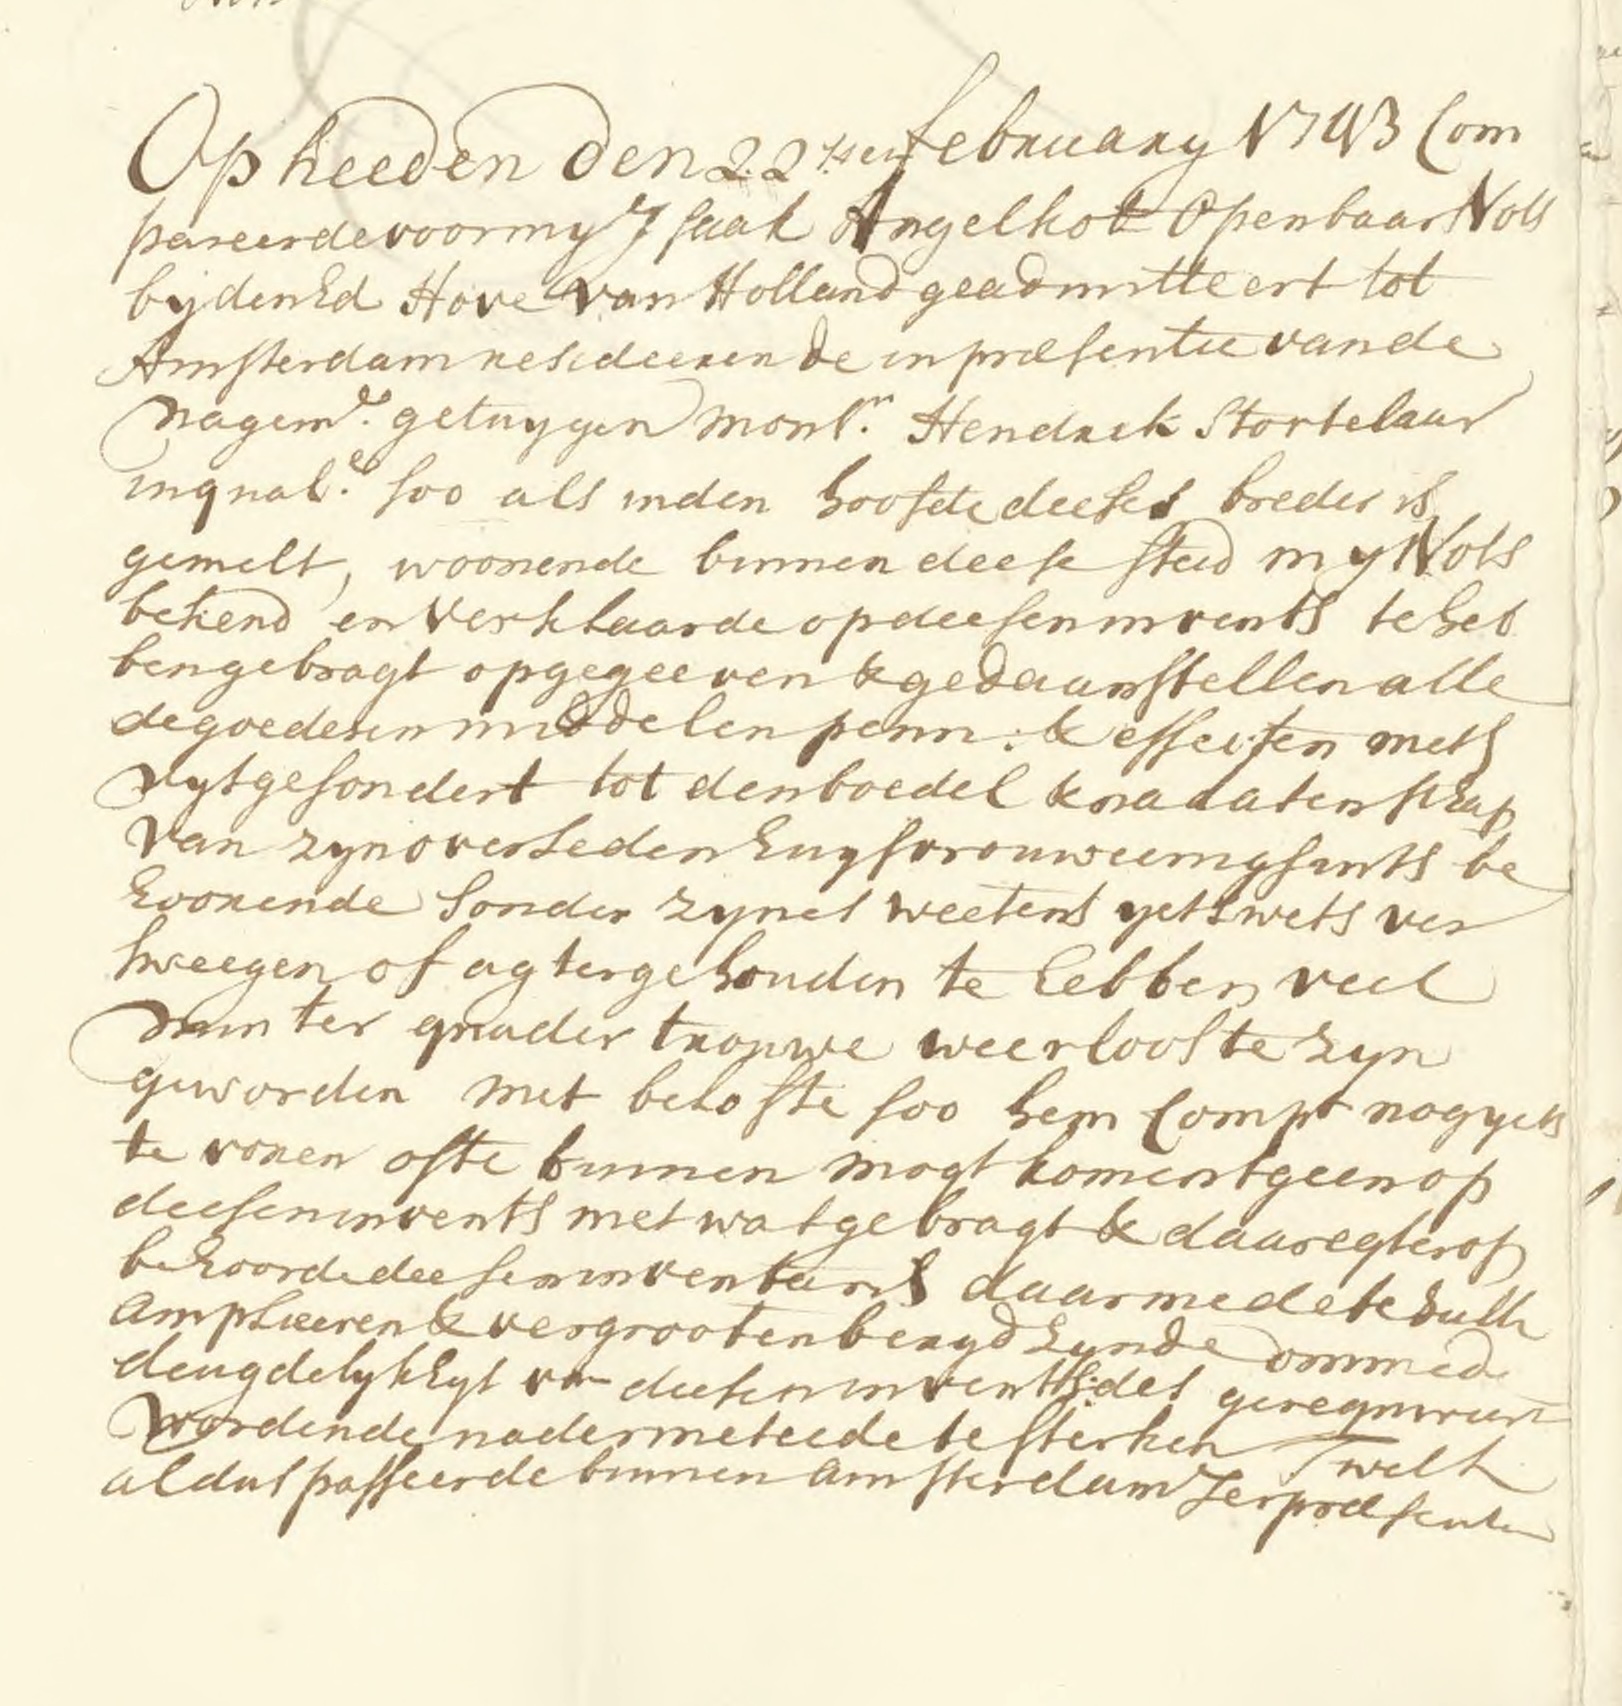 Op heeden den 22sten february 1743 Com
pareerde voor my Isaak Angelkot Openbaar Nots
by den Ed Hove van Holland geadmitteert tot
Amsterdam resideerende in præsentie van de
nagemde. getuygen Monsr. Hendrik Stortelaar
in qualé. soo als in den hoofde deeses breder is
gemelt, woonende binnen deese stad my Nots
bekend en verklaarde op deesen invents te heb
ben gebragt opgegeeven & gedaan stellen alle
de goederen middelen penn: & effecten niets
uytgesondert tot den boedel & nalatenschap
van zyn overleden huysvrouwe eenigsints be
hoorende sonder zynes weetens yets wets ver
sweegen of agtergehouden te hebben veel
min ter quader trouwe weerloos te zyn
geworden met belofte soo hem Compt nog yets
te voren ofte binnen mogt komen tgeen op
deesen invents niet wat gebragt & daar egter op
behoorde deesen inventaris daarmede te sull
amplieeren & vergrooten beryd zynde omme de
deugdelykhyt van deesen invents des gerequireert
wordende nader met eede te sterken Twelk
aldus passeerde binnen Amsterdam Ter præsentie